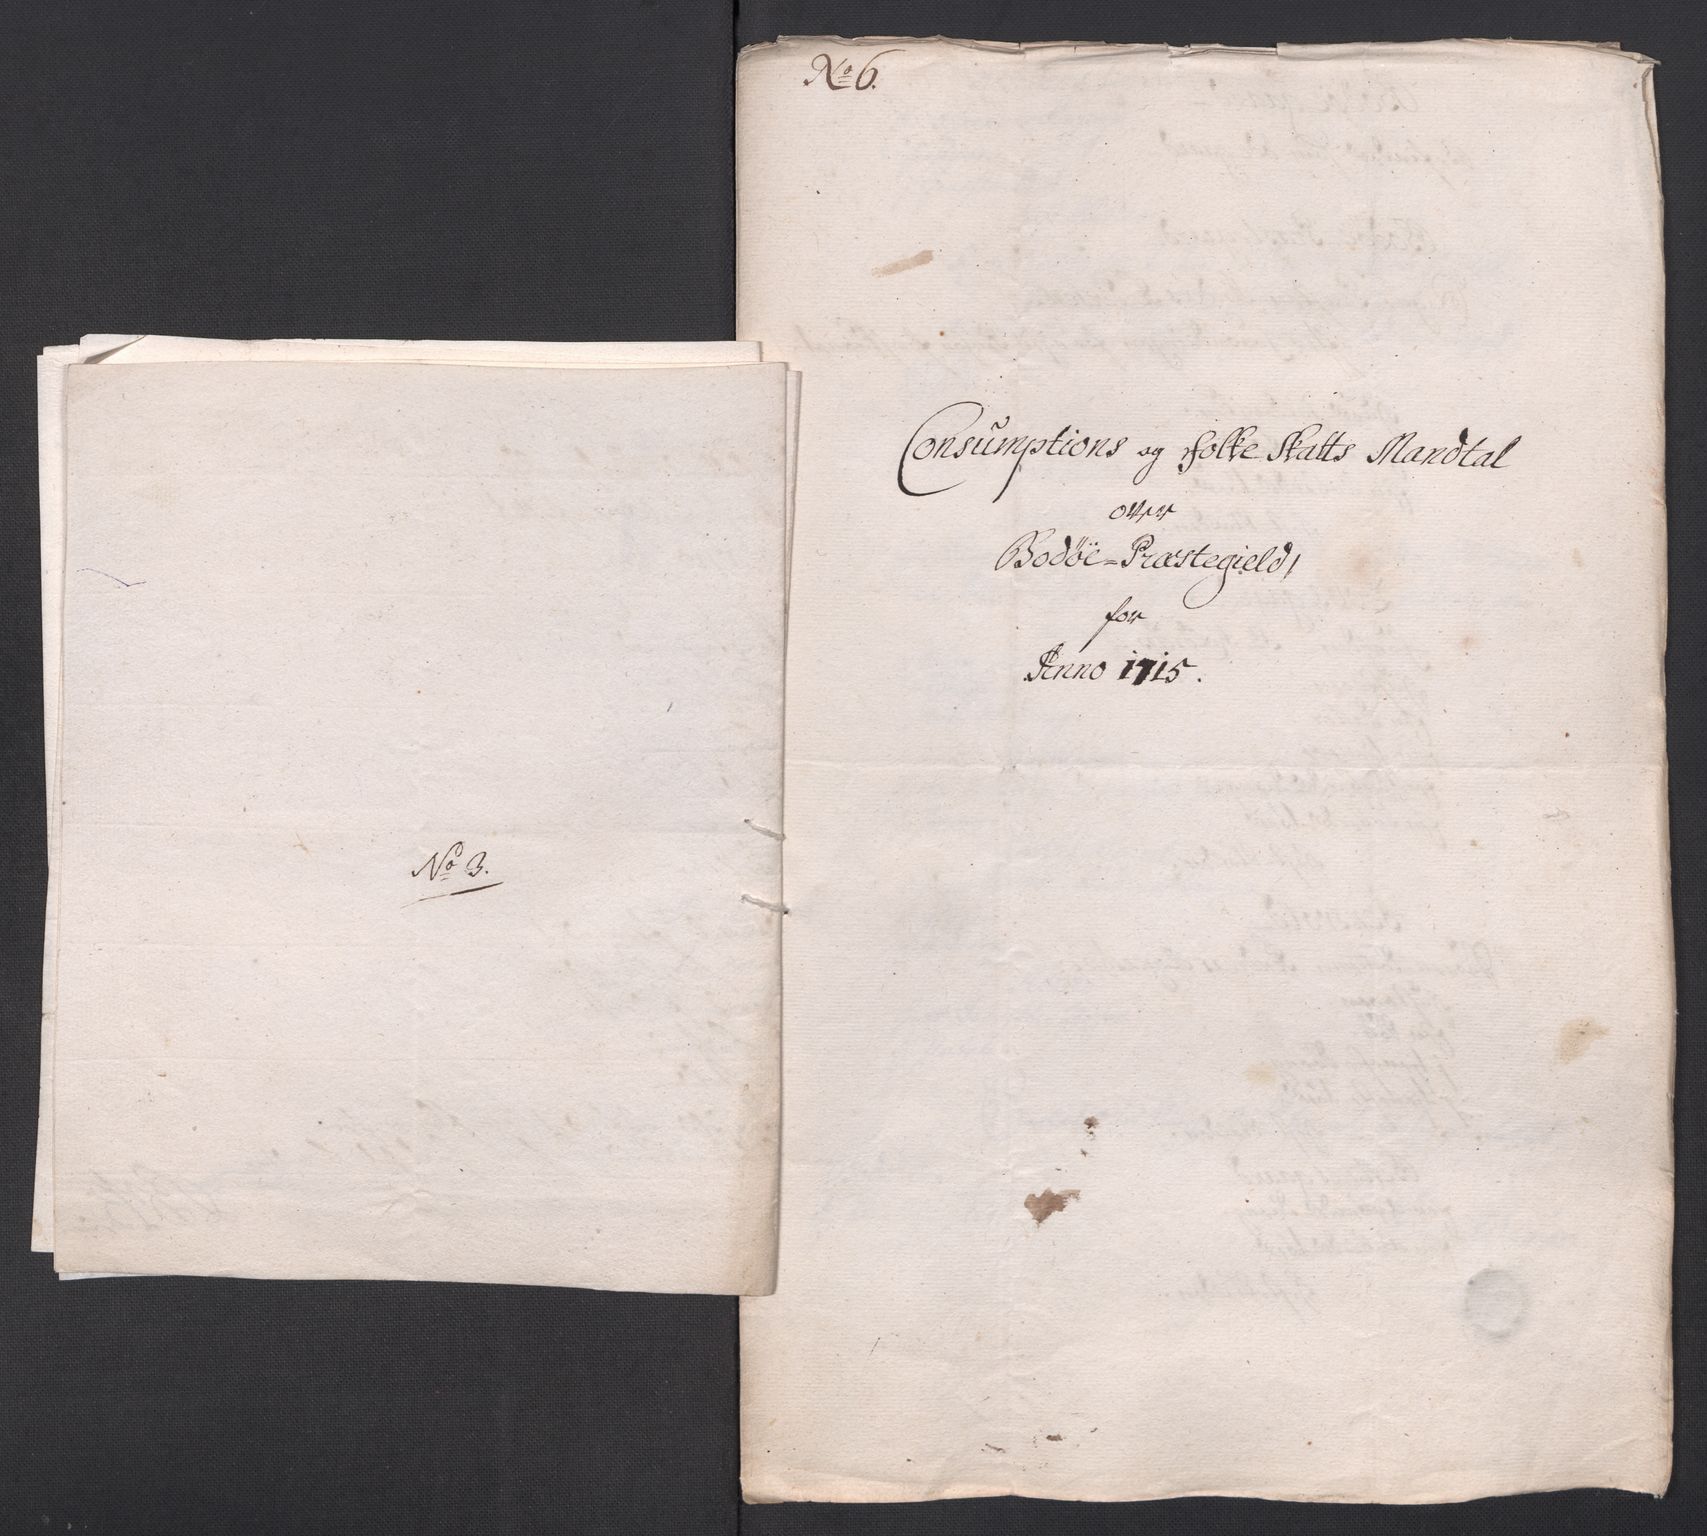 No 3.
No 6.
Consumptions og Folke Skatts Mandtal
over
Bodøe-Præstegield,
for
Anno 1715.